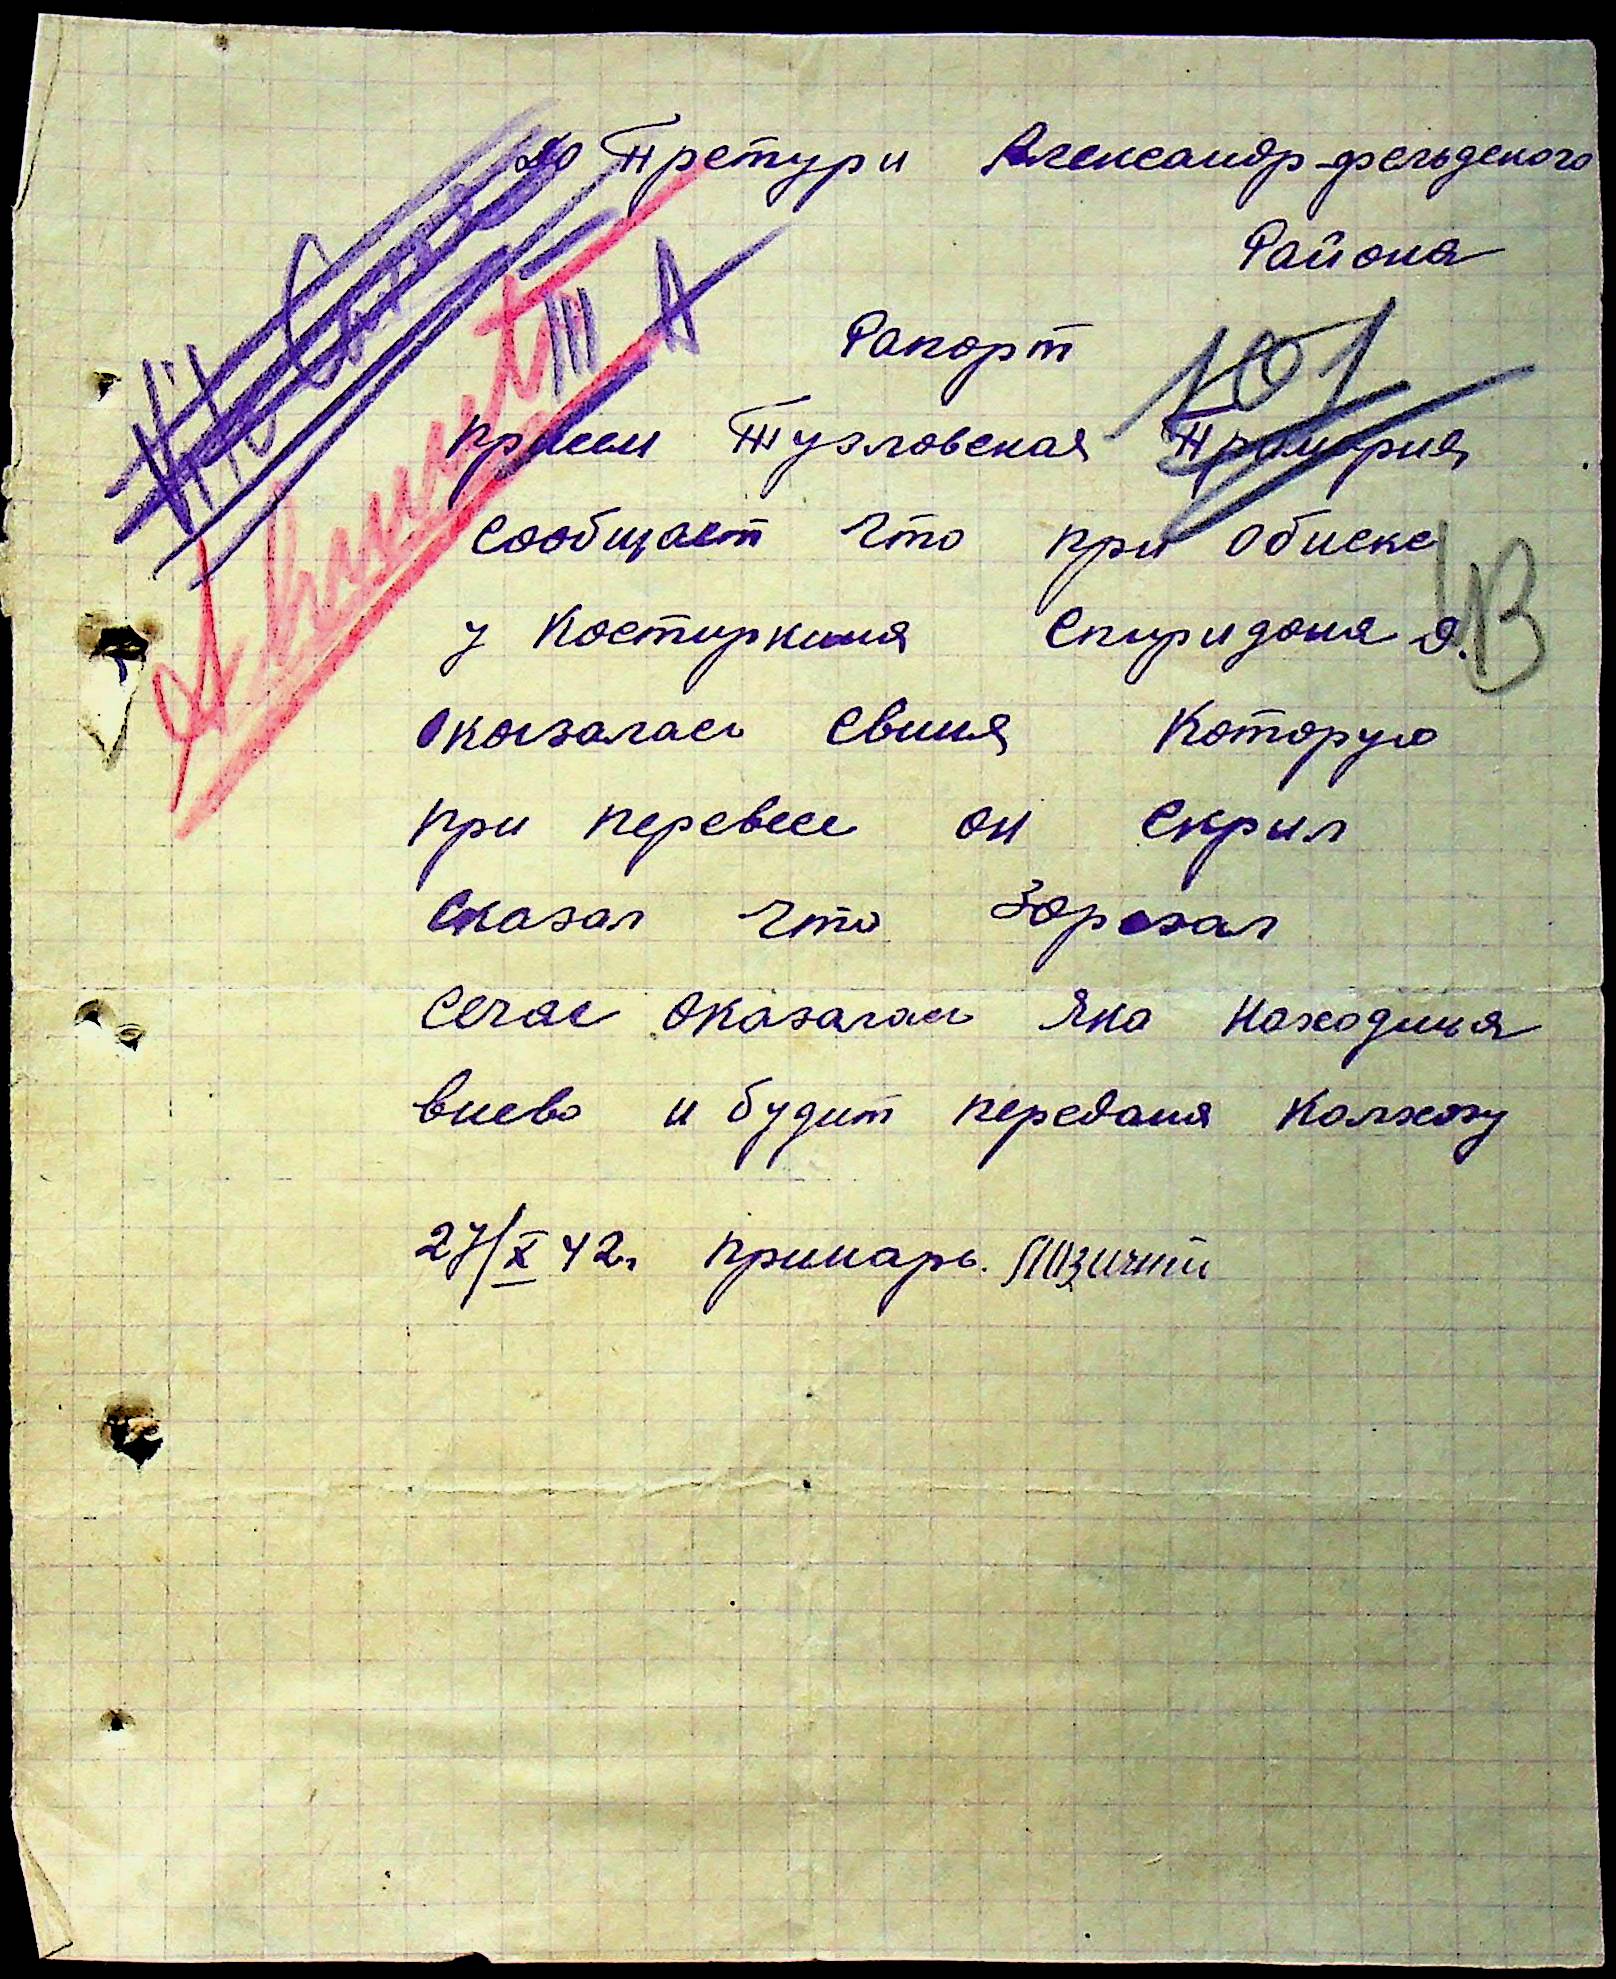 до Претури Александр-фельдского
Района
Рапорт
III А
101
Тузловская Примария
сообщает что при обиске
13
у Костиркина Спиридона Д.
оказалась Свиня Которую
при перевесе он Скрил
Сказал что Зарезал
Сечас оказалась Яка находиця
внево и будит передана Колхозу
27/X 42г. примарь.